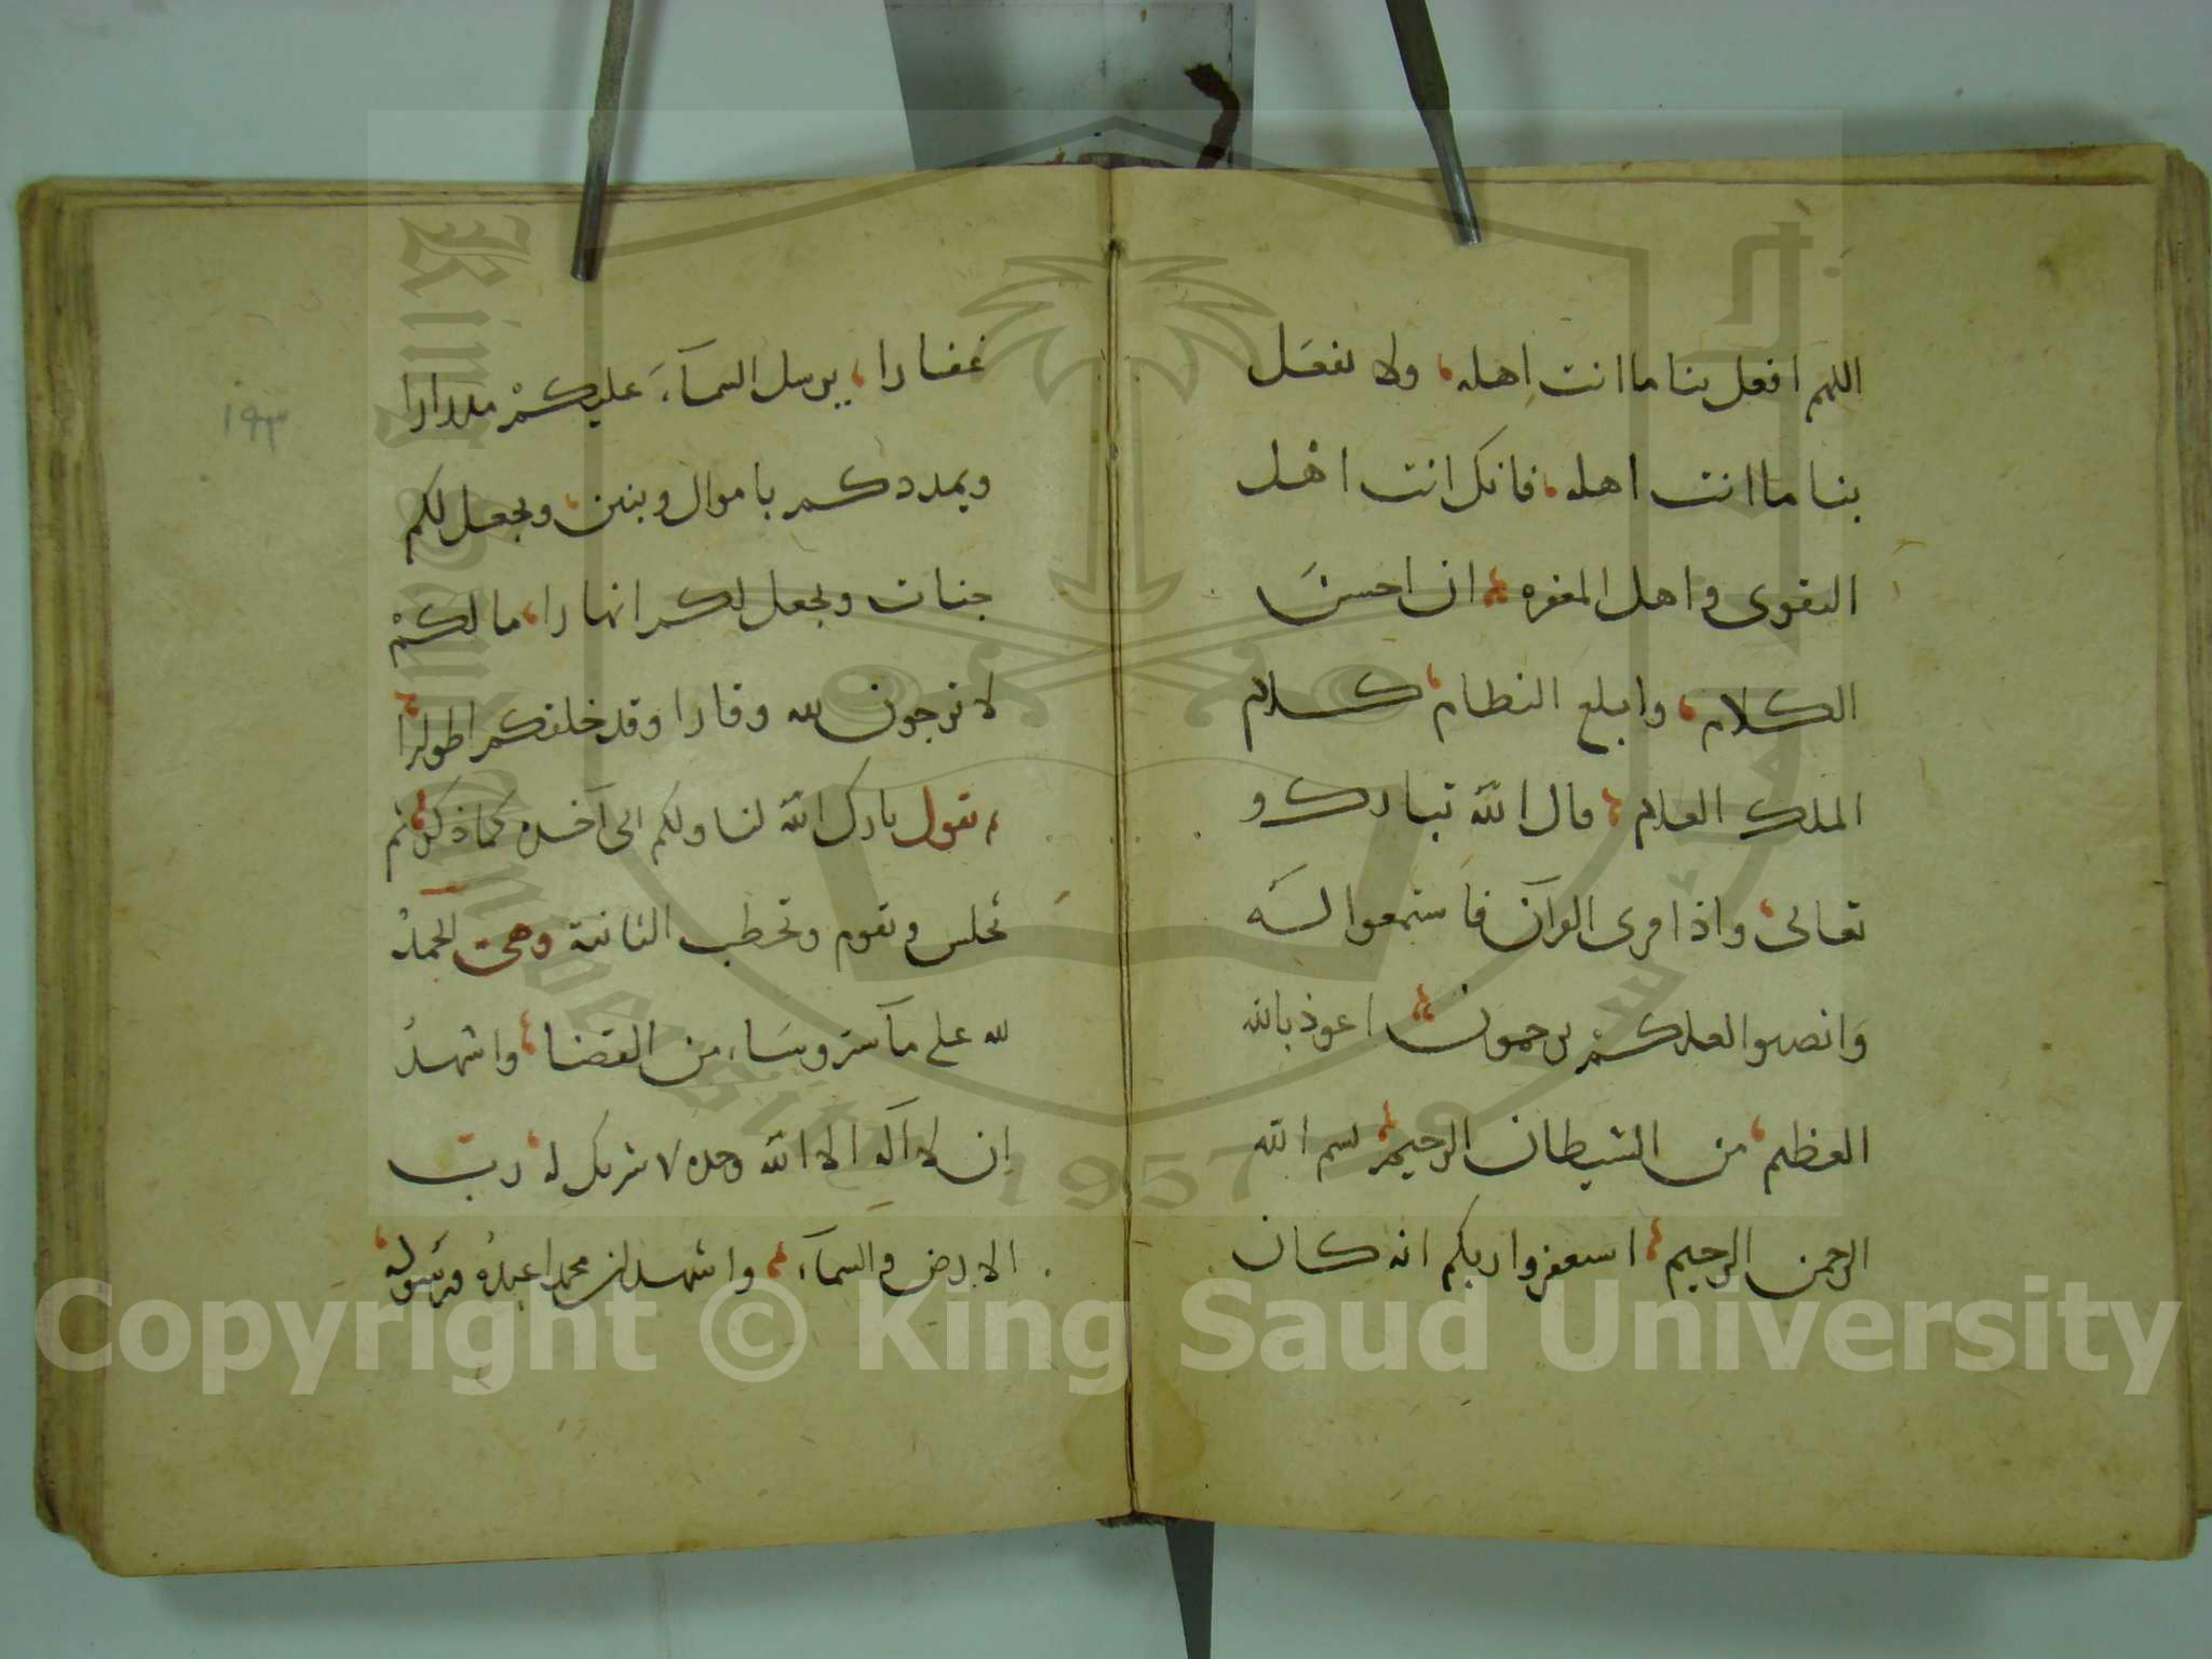 اللهم افعل بنا ما انت اهله، ولا تفعل
بنا ما انت اهله، فانك انت اهل
التقوى واهل المغفره، ان احسن
الكلام، وابلغ النظام، كلام
الملك العلام، قال الله تبارك و
تعالى، واذا قرى القرآن فاستمعوا له
وانصتوا لعلكم ترحمون، اعوذ بالله
العظيم، من الشيطان الرجيم، بسم الله
الرحمن الرحيم، استغفروا ربكم انه كان
غفارا، يرسل السمآء عليكم مدرارا
ويمددكم باموال وبنين، ويجعل لكم
جنات ويجعل لكم انهارا، ما لكم
لا ترجون لله وقارا وقد خلقكم اطوارا
تقول بارك الله لنا ولكم الى آخره كما ذكر، ثم
تجلس وتقوم وتخطب الثانية وهى الحمد
لله على ما سر وسآء من القضا، واشهد
ان لا آله الا الله وحده لا شريك له، رب
الارض والسمآء، واشهد ان محمدا عبده ورسوله
١٩٣
Copyright © King Saud University
King Saud University
1957